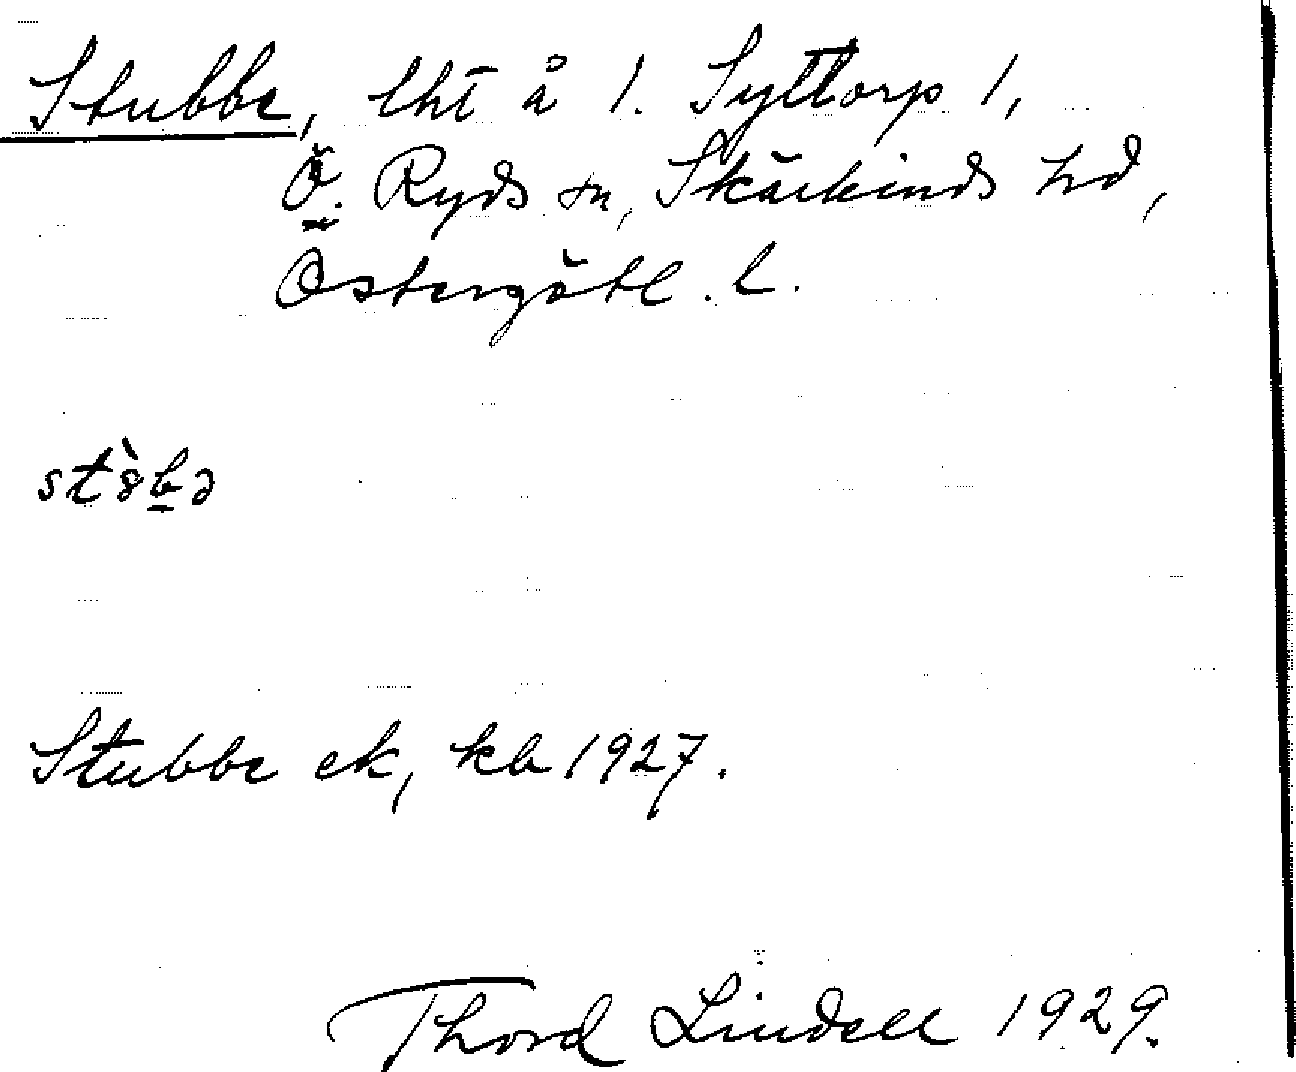 Stubbe, lht å 1. Syttorp 1,
Ö. Ryds sn, Skärkinds hd,
Östergötl. l.
Stubbe ek, kb 1927.
Thord Lindell 1929.